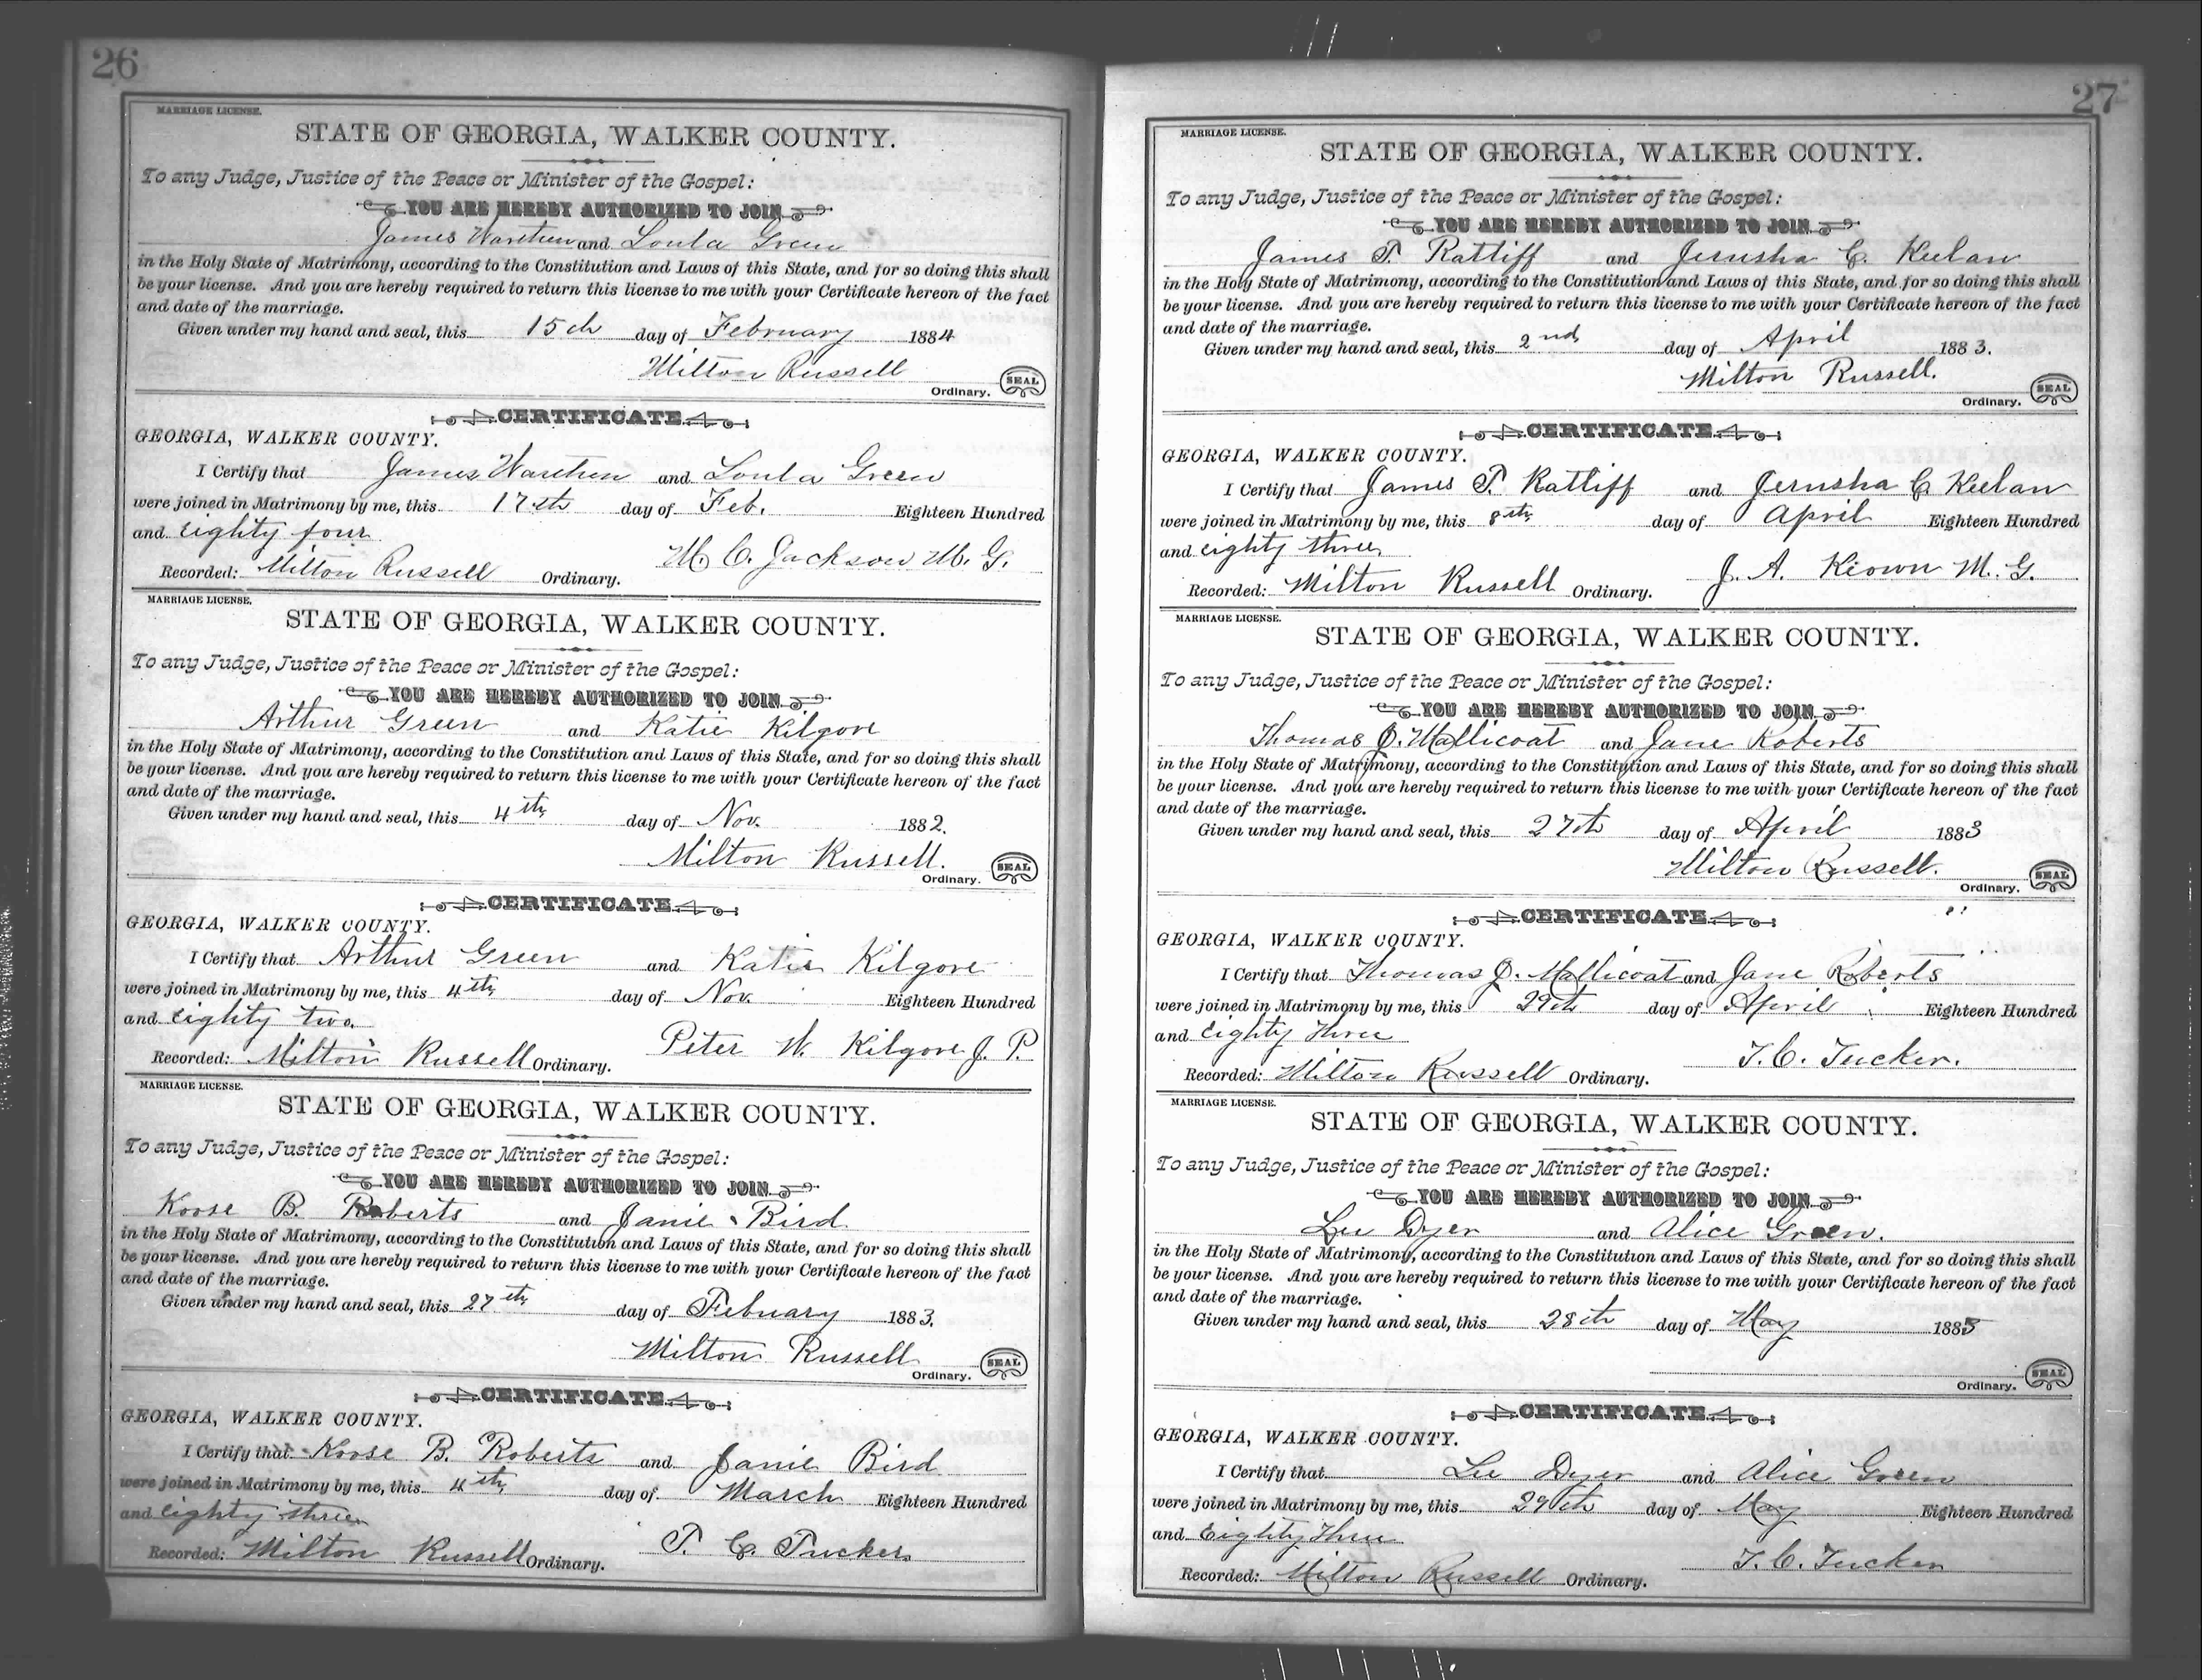 26
MARRIAGE LICENSE.
STATE OF GEORGIA, WALKER COUNTY.
To any Judge, Justice of the Peace or Minister of the Gospel:
YOU ARE HEREBY AUTHORIZED TO JOIN
James Warthen and Loula Green
in the Holy State of Matrimony, according to the Constitution and Laws of this State, and for so doing this shall
be your license. And you are hereby required to return this license to me with your Certificate hereon of the fact
and date of the marriage.
Given under my hand and seal, this 15th day of February 1884
Milton Russell
Ordinary. SEAL
CERTIFICATE
GEORGIA, WALKER COUNTY.
I Certify that James Warthen and Loula Green
were joined in Matrimony by me, this 17th day of Feb. Eighteen Hundred
and eighty four
M. C. Jackson M. G.
Recorded: Milton Russell Ordinary.
MARRIAGE LICENSE.
STATE OF GEORGIA, WALKER COUNTY.
To any Judge, Justice of the Peace or Minister of the Gospel:
YOU ARE HEREBY AUTHORIZED TO JOIN
Arthur Green and Katie Kilgore
in the Holy State of Matrimony, according to the Constitution and Laws of this State, and for so doing this shall
be your license. And you are hereby required to return this license to me with your Certificate hereon of the fact
and date of the marriage.
Given under my hand and seal, this 4th day of Nov. 1882.
Milton Russell.
Ordinary. SEAL
CERTIFICATE
GEORGIA, WALKER COUNTY.
I Certify that Arthur Green and Katie Kilgore
were joined in Matrimony by me, this 4th day of Nov. Eighteen Hundred
and eighty two.
Peter W. Kilgore J. P.
Recorded: Milton Russell Ordinary.
MARRIAGE LICENSE.
STATE OF GEORGIA, WALKER COUNTY.
To any Judge, Justice of the Peace or Minister of the Gospel:
YOU ARE HEREBY AUTHORIZED TO JOIN
Koose B. Roberts and Janie Bird
in the Holy State of Matrimony, according to the Constitution and Laws of this State, and for so doing this shall
be your license. And you are hereby required to return this license to me with your Certificate hereon of the fact
and date of the marriage.
Given under my hand and seal, this 27th day of Febuary 1883.
Milton Russell
Ordinary. SEAL
CERTIFICATE
GEORGIA, WALKER COUNTY.
I Certify that Koose B. Roberts and Janie Bird
were joined in Matrimony by me, this 4th day of March Eighteen Hundred
and eighty three
T. C. Tucker
Recorded: Milton Russell Ordinary.
27
MARRIAGE LICENSE.
STATE OF GEORGIA, WALKER COUNTY.
To any Judge, Justice of the Peace or Minister of the Gospel:
YOU ARE HEREBY AUTHORIZED TO JOIN
James T. Ratliff and Jerusha C. Keelan
in the Holy State of Matrimony, according to the Constitution and Laws of this State, and for so doing this shall
be your license. And you are hereby required to return this license to me with your Certificate hereon of the fact
and date of the marriage.
Given under my hand and seal, this 2nd day of April 1883.
Milton Russell.
Ordinary. SEAL
CERTIFICATE
GEORGIA, WALKER COUNTY.
I Certify that James T. Ratliff and Jerusha C. Keelan
were joined in Matrimony by me, this 8th day of April Eighteen Hundred
and eighty three
J. A. Keown M. G.
Recorded: Milton Russell Ordinary.
MARRIAGE LICENSE.
STATE OF GEORGIA, WALKER COUNTY.
To any Judge, Justice of the Peace or Minister of the Gospel:
YOU ARE HEREBY AUTHORIZED TO JOIN
Thomas J. Mallicoat and Jane Roberts
in the Holy State of Matrimony, according to the Constitution and Laws of this State, and for so doing this shall
be your license. And you are hereby required to return this license to me with your Certificate hereon of the fact
and date of the marriage.
Given under my hand and seal, this 27th day of April 1883
Milton Russell.
Ordinary. SEAL
CERTIFICATE
GEORGIA, WALKER COUNTY.
I Certify that Thomas J. Mallicoat and Jane Roberts
were joined in Matrimony by me, this 29th day of April Eighteen Hundred
and Eighty Three
T. C. Tucker.
Recorded: Milton Russell Ordinary.
MARRIAGE LICENSE.
STATE OF GEORGIA, WALKER COUNTY.
To any Judge, Justice of the Peace or Minister of the Gospel:
YOU ARE HEREBY AUTHORIZED TO JOIN
Lee Dyer and Alice Green.
in the Holy State of Matrimony, according to the Constitution and Laws of this State, and for so doing this shall
be your license. And you are hereby required to return this license to me with your Certificate hereon of the fact
and date of the marriage.
Given under my hand and seal, this 28th day of May 1883
Ordinary. SEAL
CERTIFICATE
GEORGIA, WALKER COUNTY.
I Certify that Lee Dyer and Alice Green
were joined in Matrimony by me, this 29th day of May Eighteen Hundred
and Eighty Three
T. C. Tucker
Recorded: Milton Russell Ordinary.